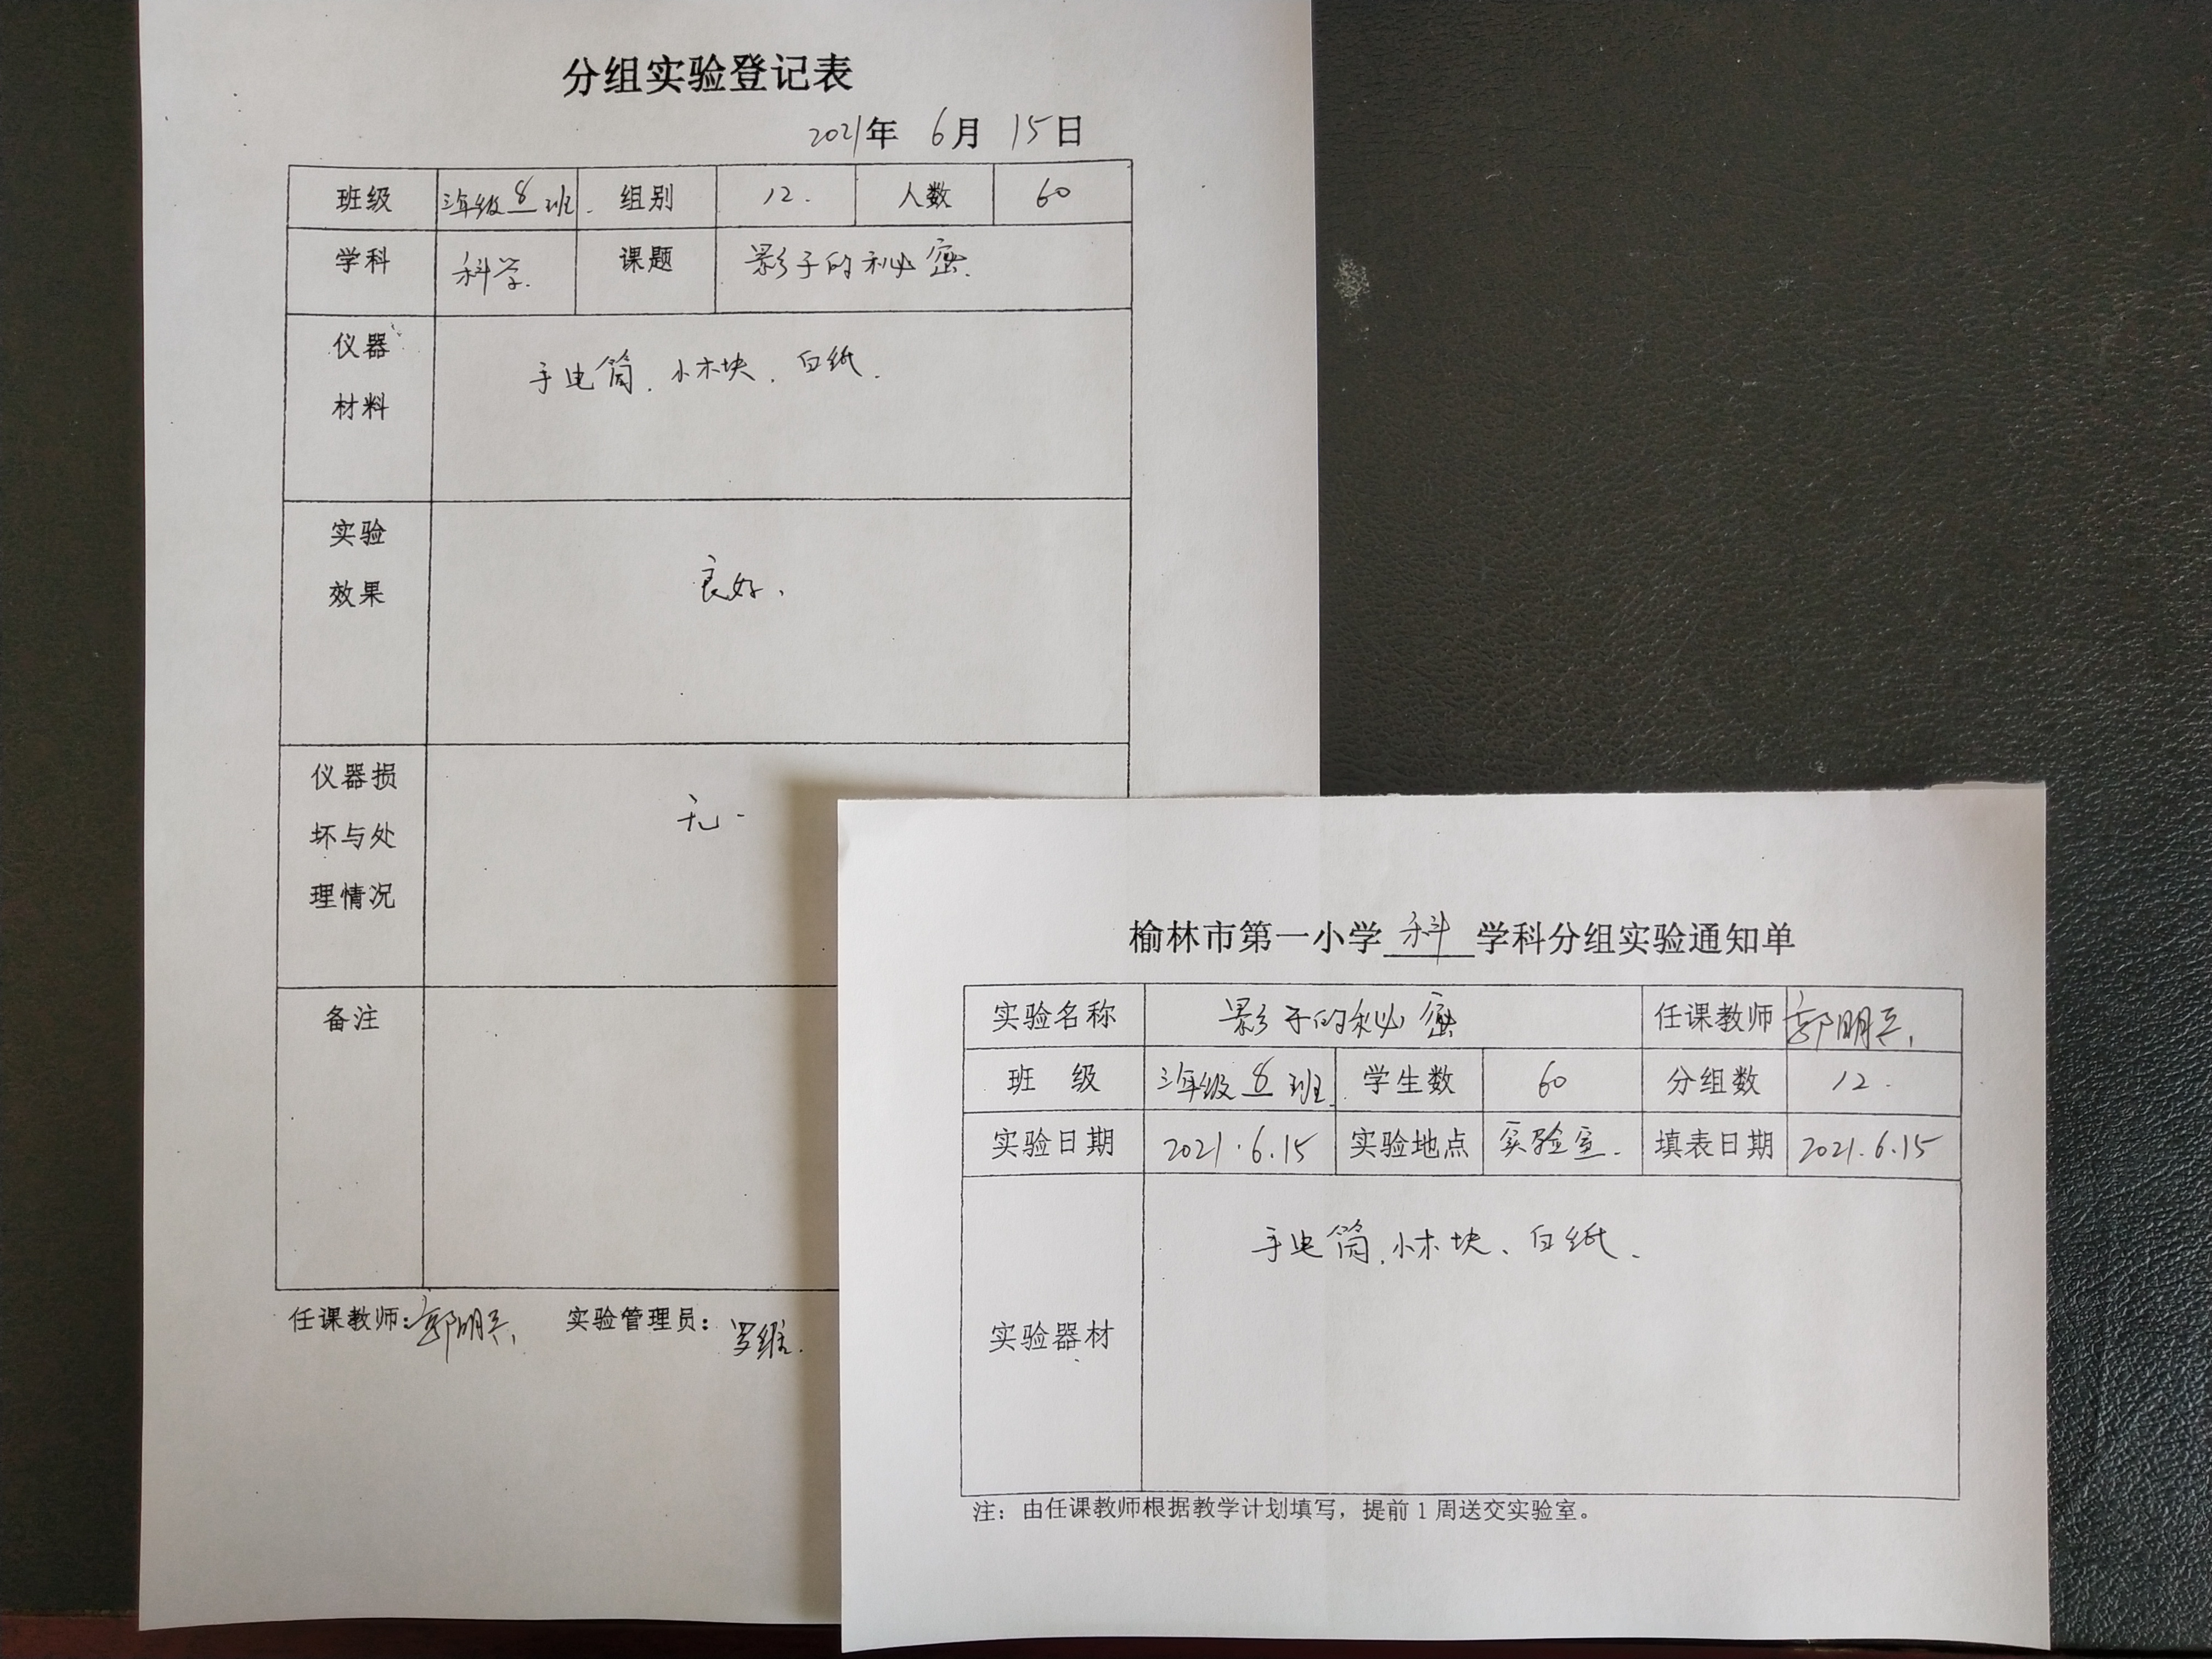 分组实验登记表
2021年 6月 15日
班级 三年级8班. 组别 12. 人数 60
学科 科学. 课题 影子的秘密.
仪器
材料
手电筒、小木块、白纸.
实验
效果
良好.
仪器损
坏与处
理情况
无.
备注
任课教师: 郭明 实验管理员: 罗维.
榆林市第一小学 科 学科分组实验通知单
实验名称 影子的秘密 任课教师 郭明
班 级 三年级8班. 学生数 60 分组数 12.
实验日期 2021.6.15 实验地点 实验室. 填表日期 2021.6.15
实验器材 手电筒、小木块、白纸.
注：由任课教师根据教学计划填写，提前1周送交实验室。